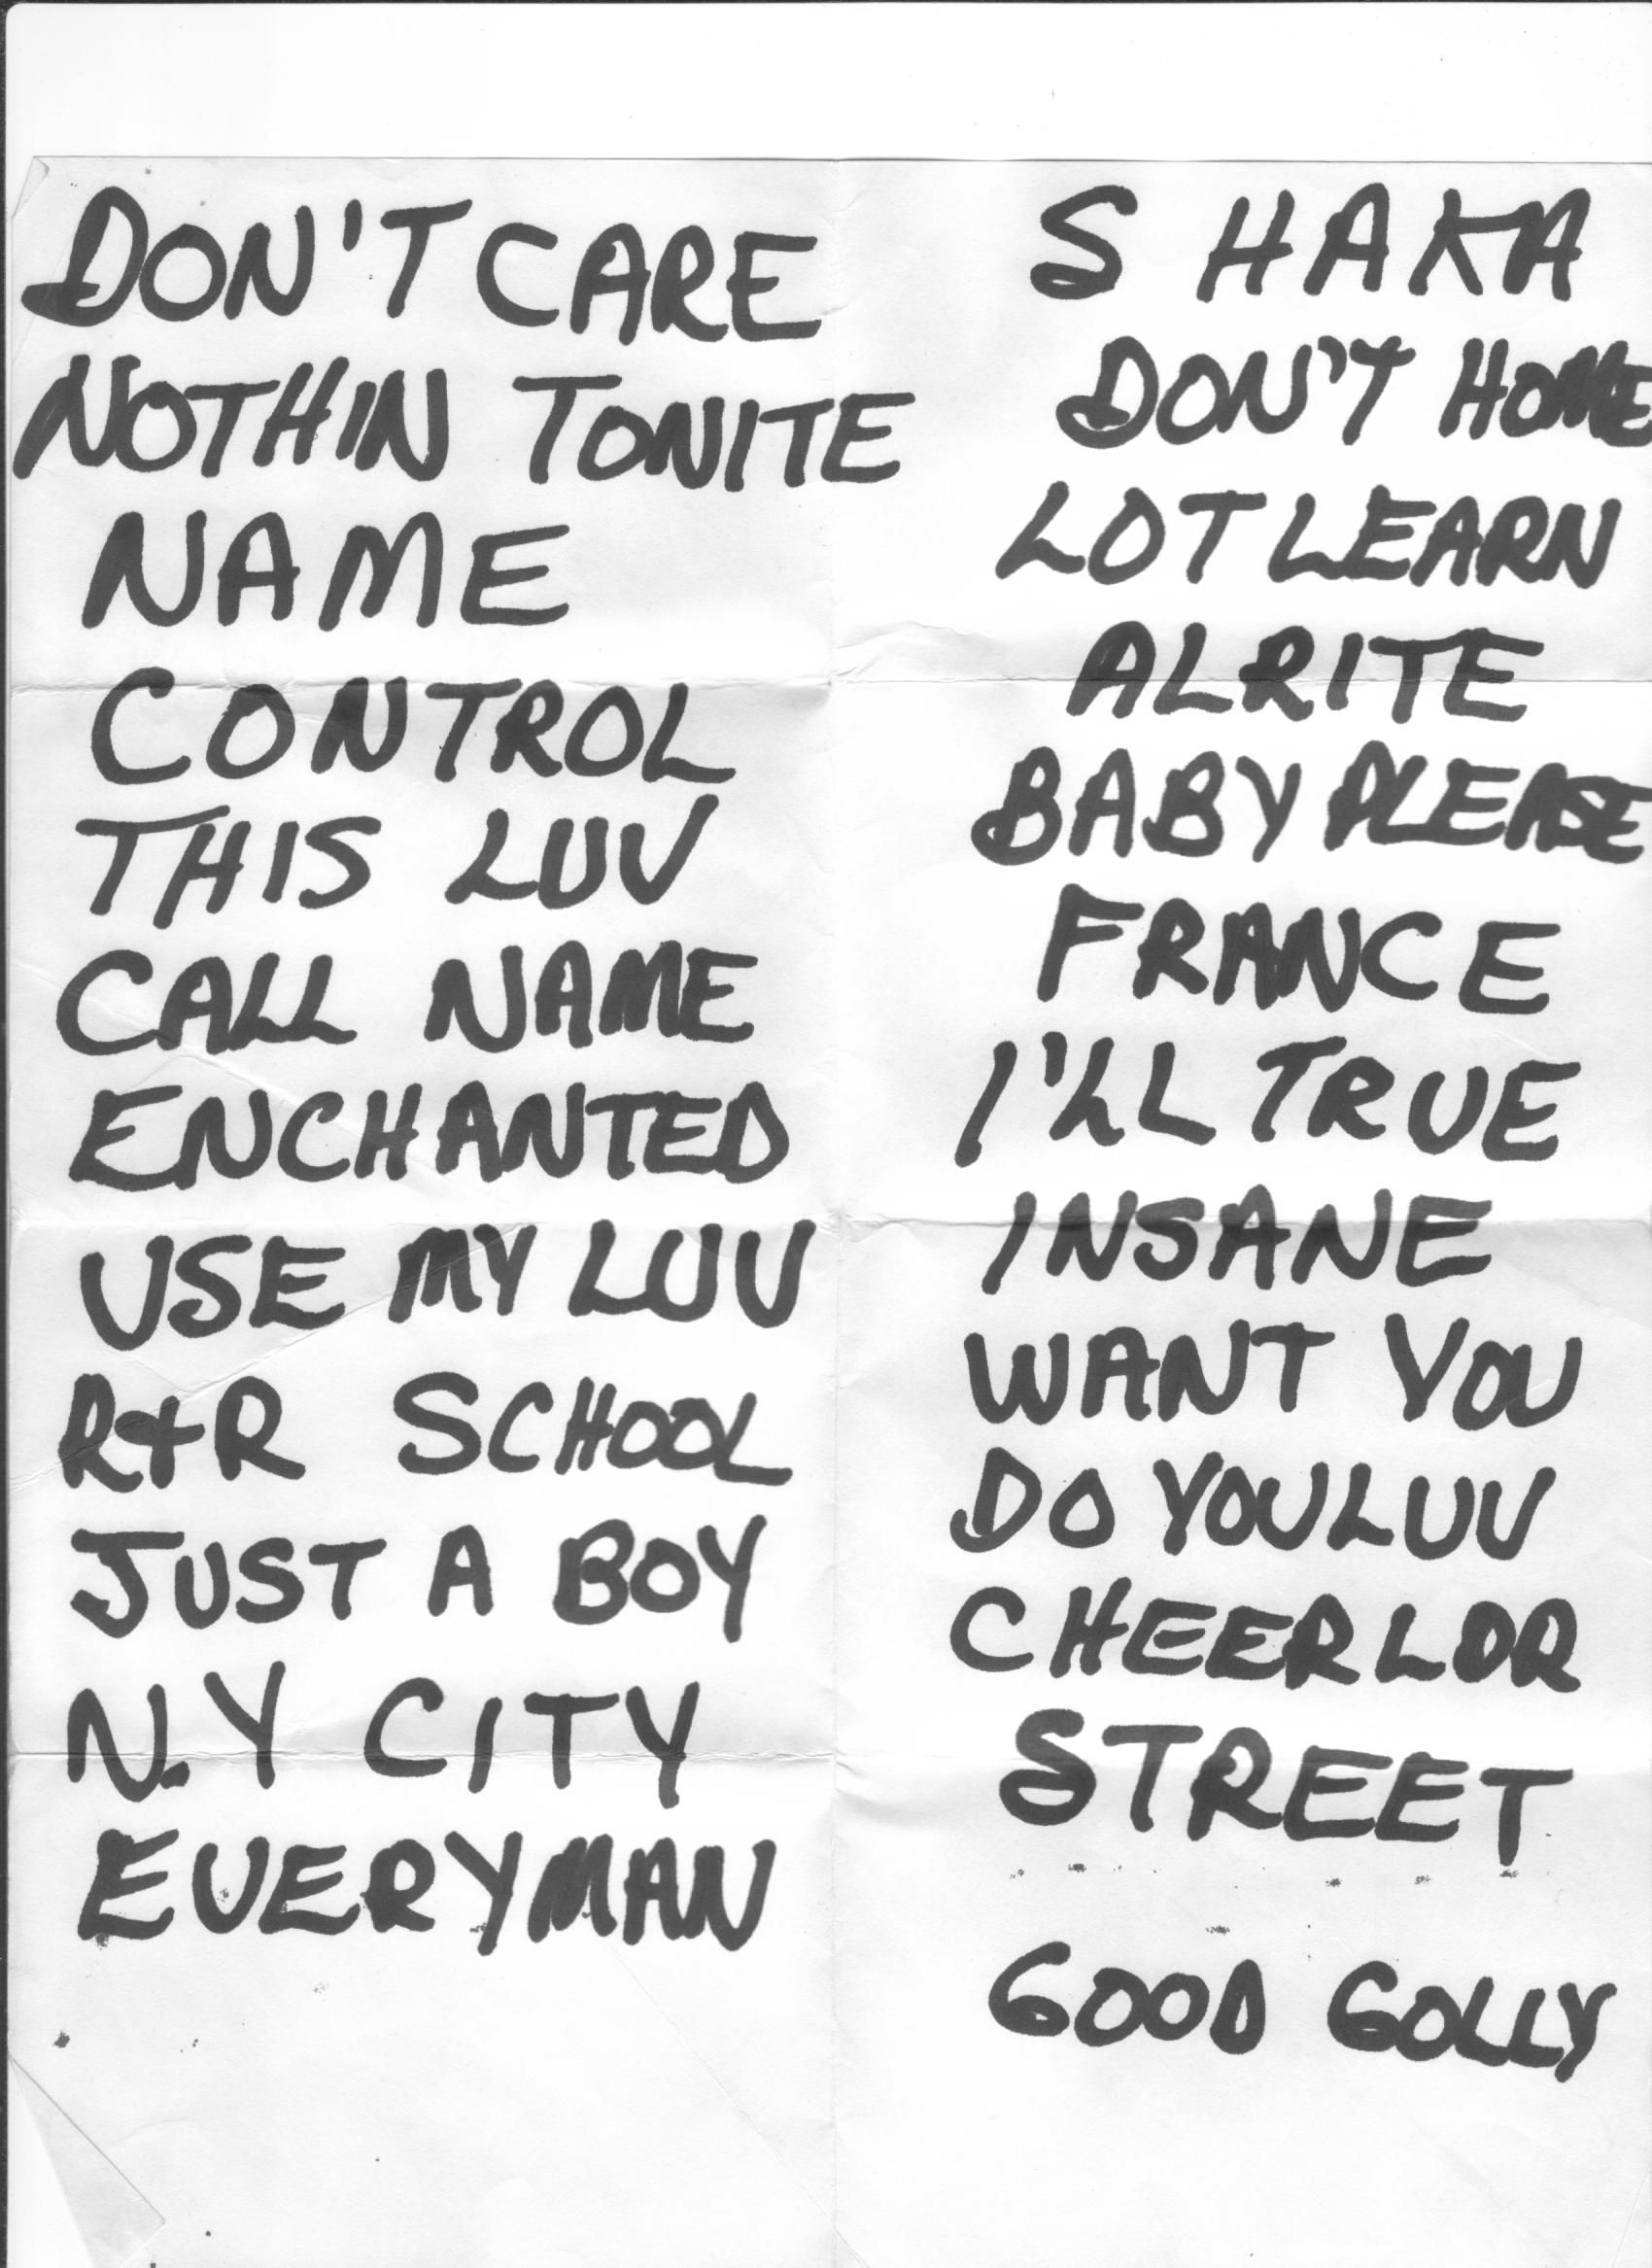 DON'T CARE
NOTHIN TONITE
NAME
CONTROL
THIS LUV
CALL NAME
ENCHANTED
USE MY LUV
R&R SCHOOL
JUST A BOY
N.Y CITY
EVERYMAN
SHAKA
DON'T HOME
LOT LEARN
ALRITE
BABY PLEASE
FRANCE
I'LL TRUE
INSANE
WANT YOU
DO YOU LUV
CHEERLDR
STREET
GOOD GOLLY